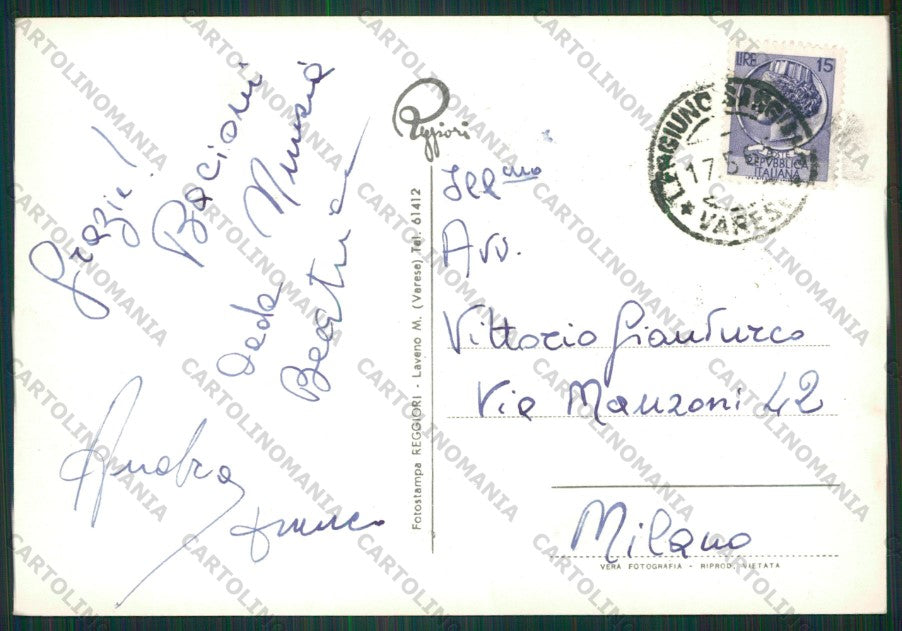 Grazie!
Bacioni
Nunzia
Dada
Beatrice
Andrea
Franco
Reggiori
Fotostampa REGGIORI - Laveno M. (Varese) Tel. 61412
LIRE 15
POSTE
REPVBBLICA
ITALIANA
17.5
VARESE
Ill.mo
Avv.
Vittorio Gianturco
Via Manzoni 42
Milano
VERA FOTOGRAFIA - RIPROD. VIETATA
CARTOLINOMANIA